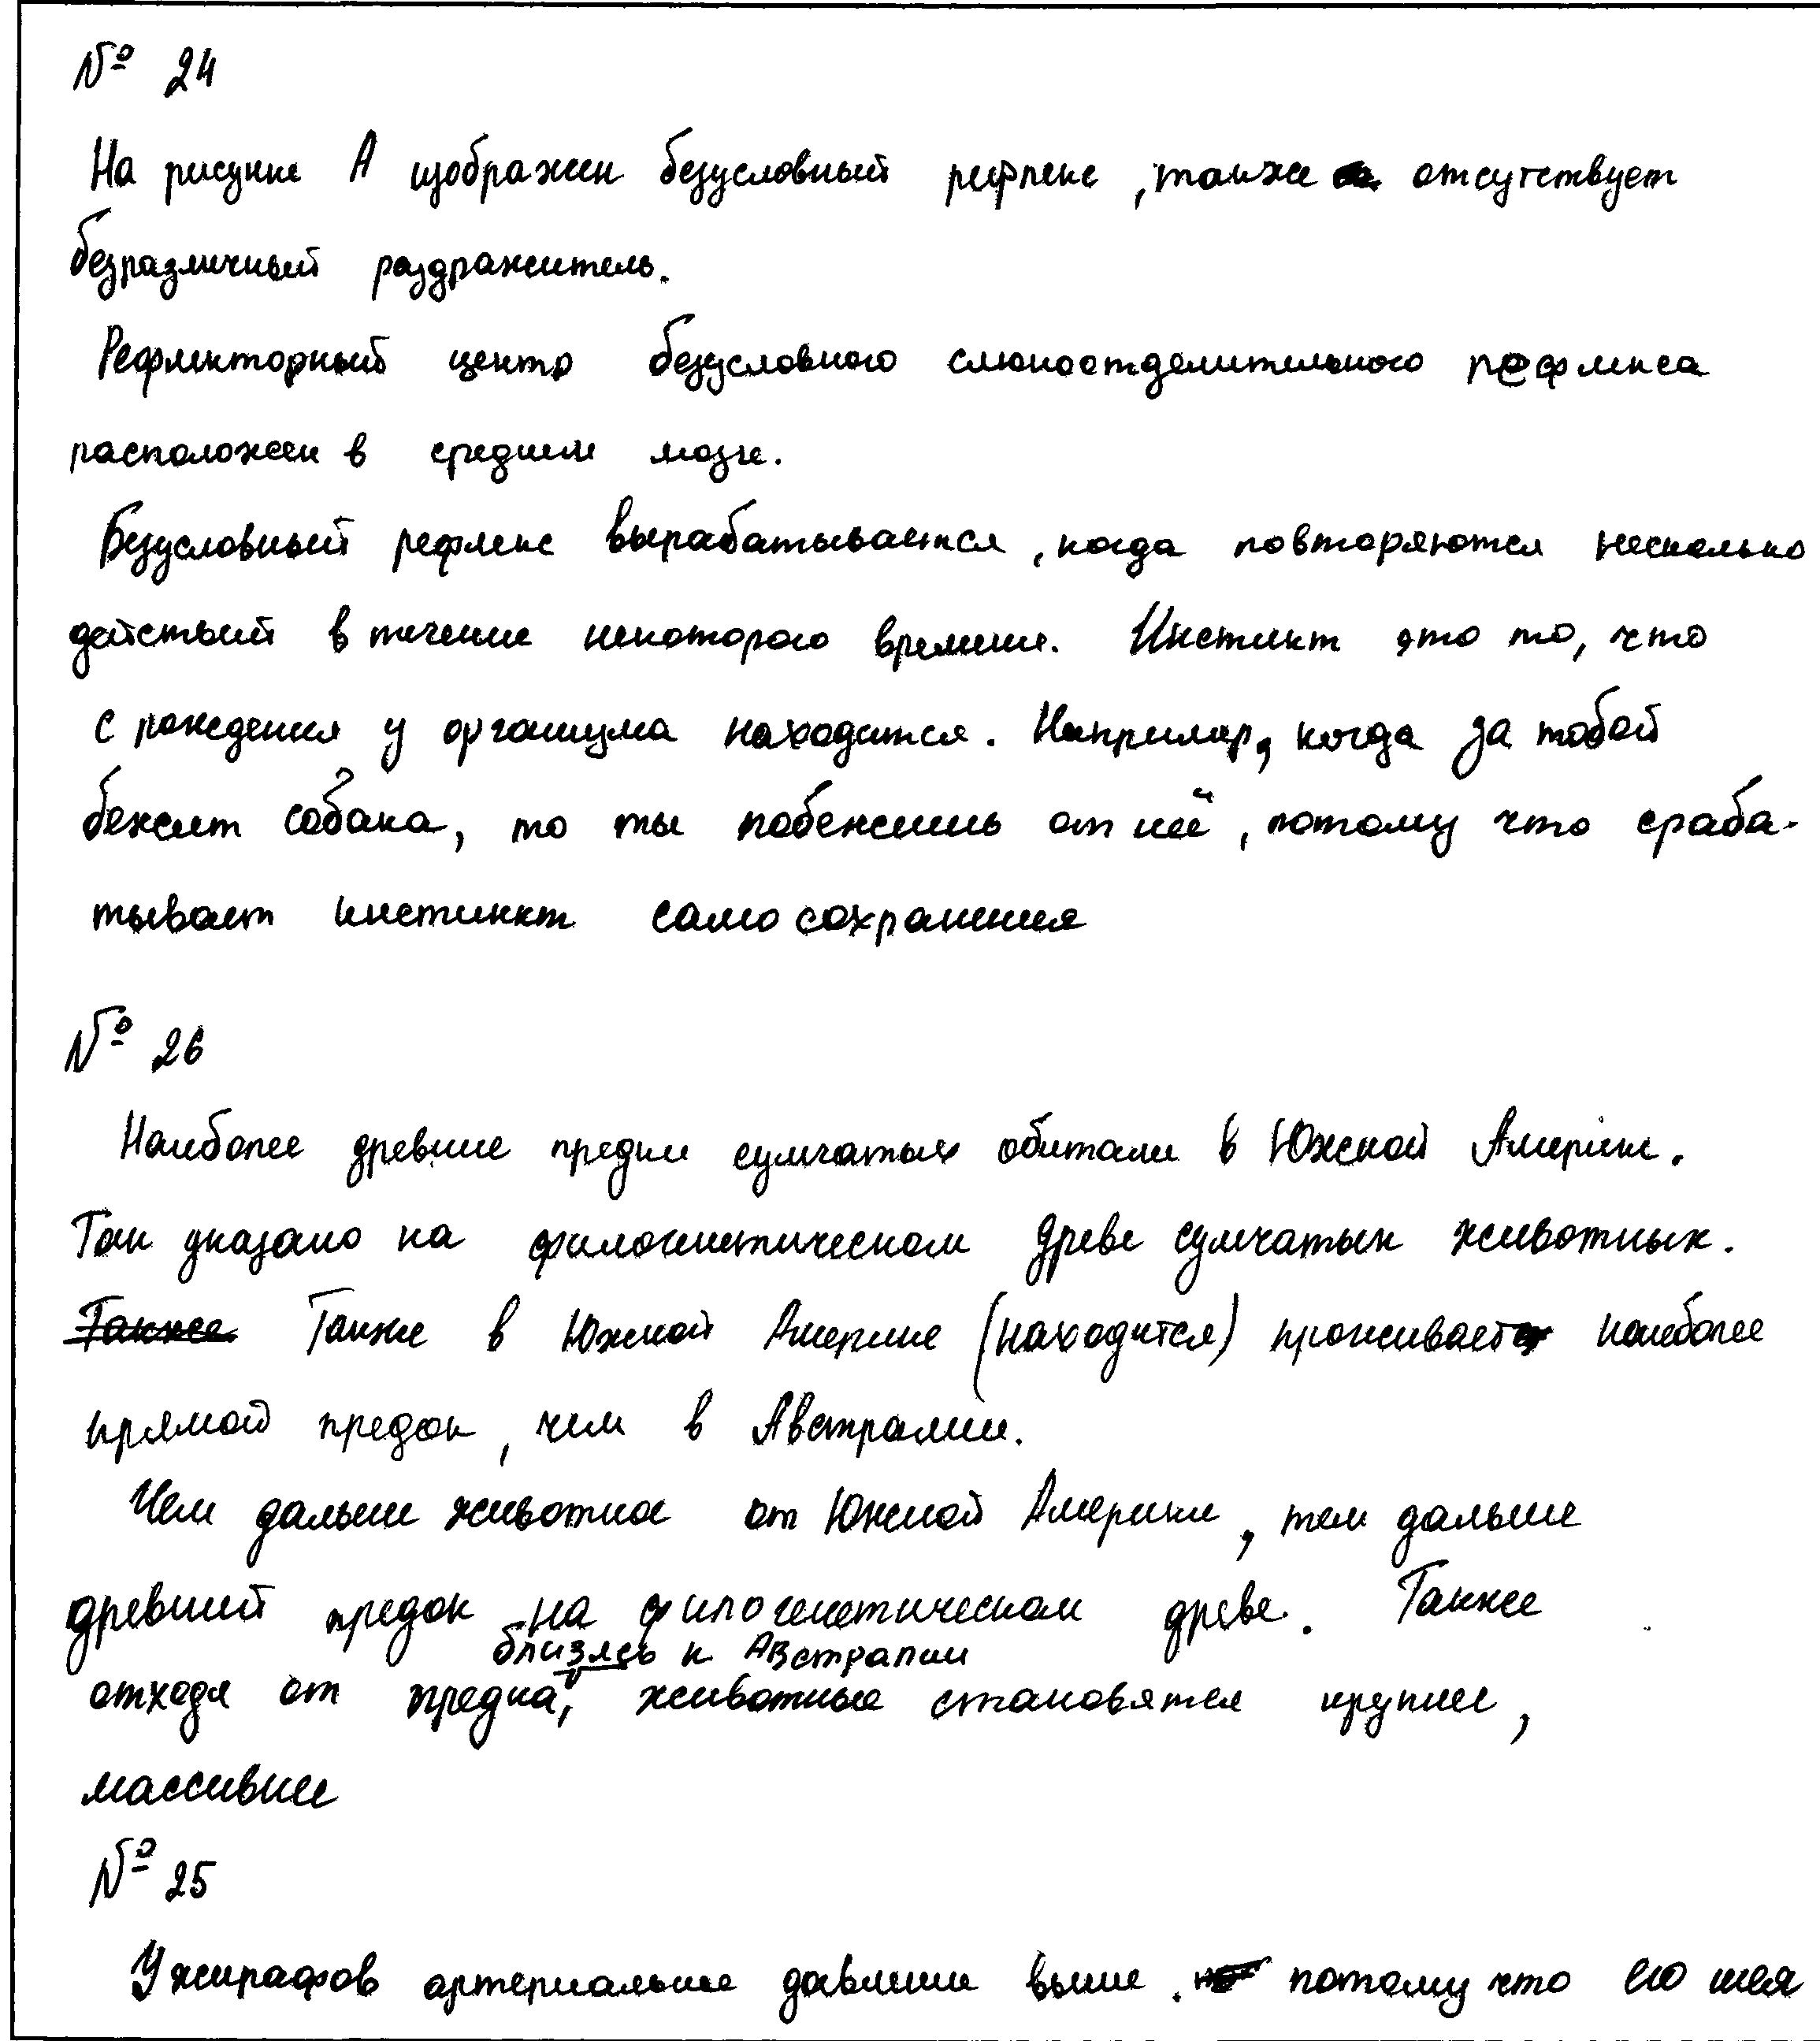 № 24
На рисунке А изображен безусловный рефлекс, также отсутствует
безразличный раздражитель.
Рефлекторный центр безусловного слюноотделительного рефлекса
расположен в среднем мозге.
Безусловный рефлекс вырабатывается, когда повторяются несколько
действий в течение некоторого времени. Инстинкт это то, что
с рождения у организма находится. Например, когда за тобой
бежит собака, то ты побежишь от неё, потому что сраба-
тывает инстинкт самосохранения
№ 26
Наиболее древние предки сумчатых обитали в Южной Америке.
Так указано на филогенетическом древе сумчатых животных.
Также Также в Южной Америке (находится) проживает наиболее
прямой предок, чем в Австралии.
Чем дальше животное от Южной Америки, тем дальше
древний предок на филогенетическом древе. Также
близясь к Австралии
отходя от предка, животные становятся крупнее,
массивнее
№ 25
У жирафов артериальное давление выше. потому что его шея